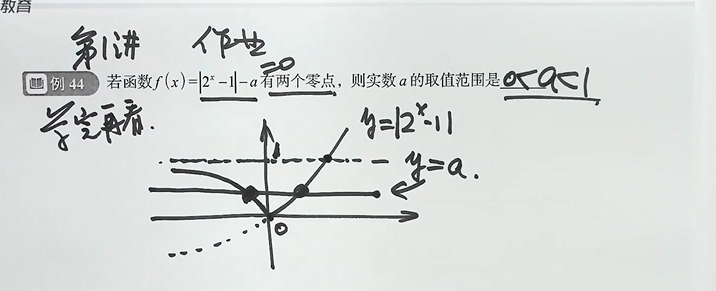 教育
第1讲 作业
=0
例 44 若函数f(x)=|2ˣ-1|-a有两个零点，则实数a的取值范围是 0<a<1
学完再看.
y=|2ˣ-1|
1
y=a.
0